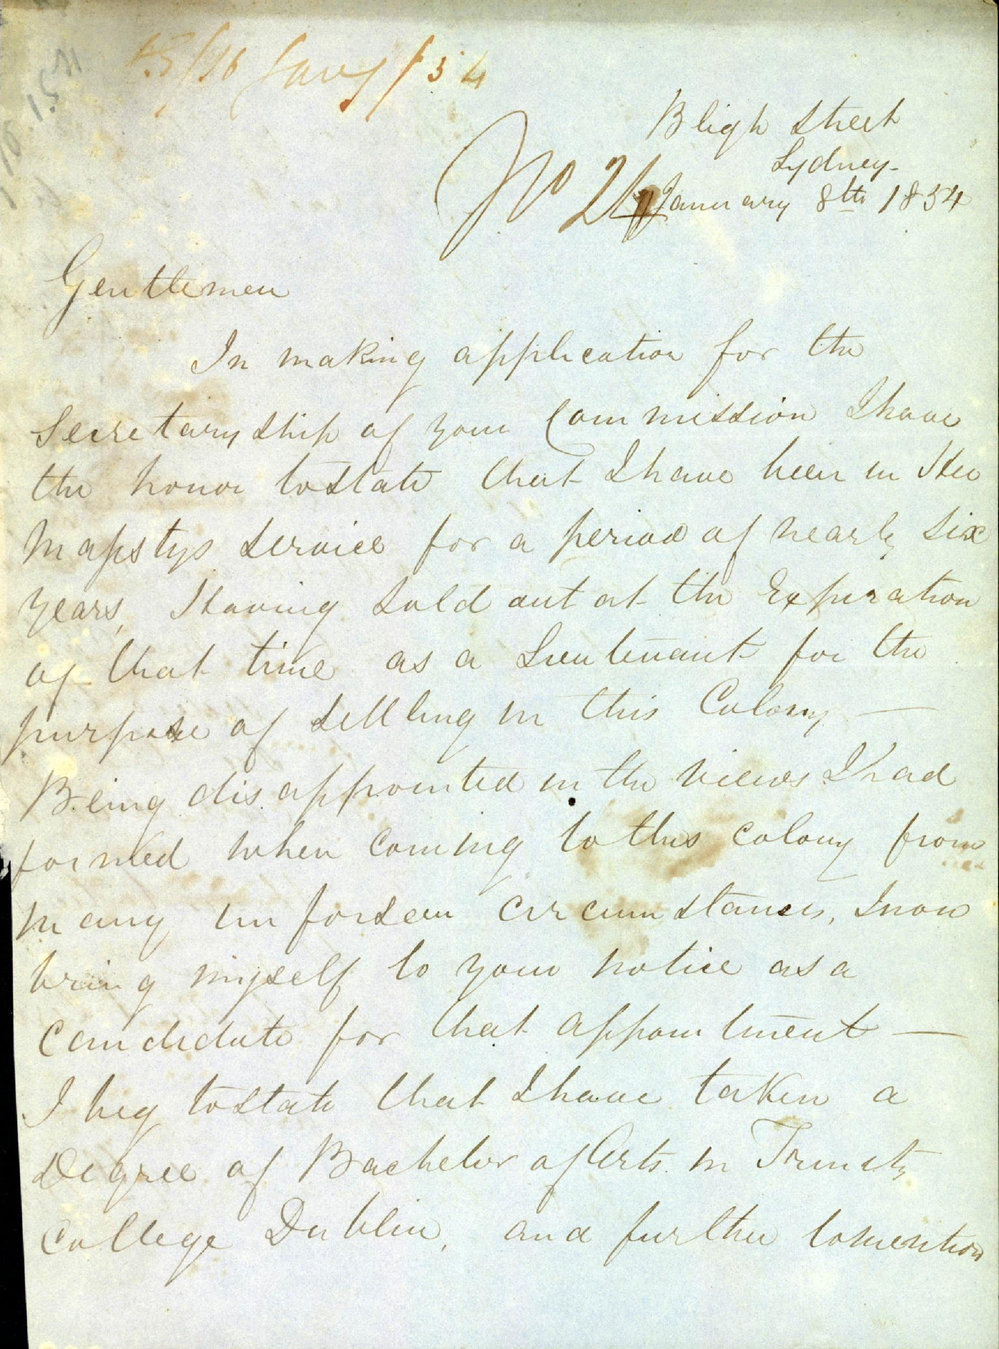 Jany / 54
Bligh Street
Sydney.
No 26 January 8th 1854
Gentlemen
In making application for the
Secretaryship of your Commission I have
the honor to state that I have been in Her
Majestys Service for a period of nearly Six
years, Having sold out at the Expiration
of that time as a Lieutenant for the
purpose of settling in this Colony —
Being disappointed in the views I had
formed when coming to this colony from
many unforseen circumstances, I now
bring myself to your notice as a
Candidate for that appointment —
I beg to state that I have taken a
Degree of Bachelor of Arts in Trinity
College Dublin, and further to mention